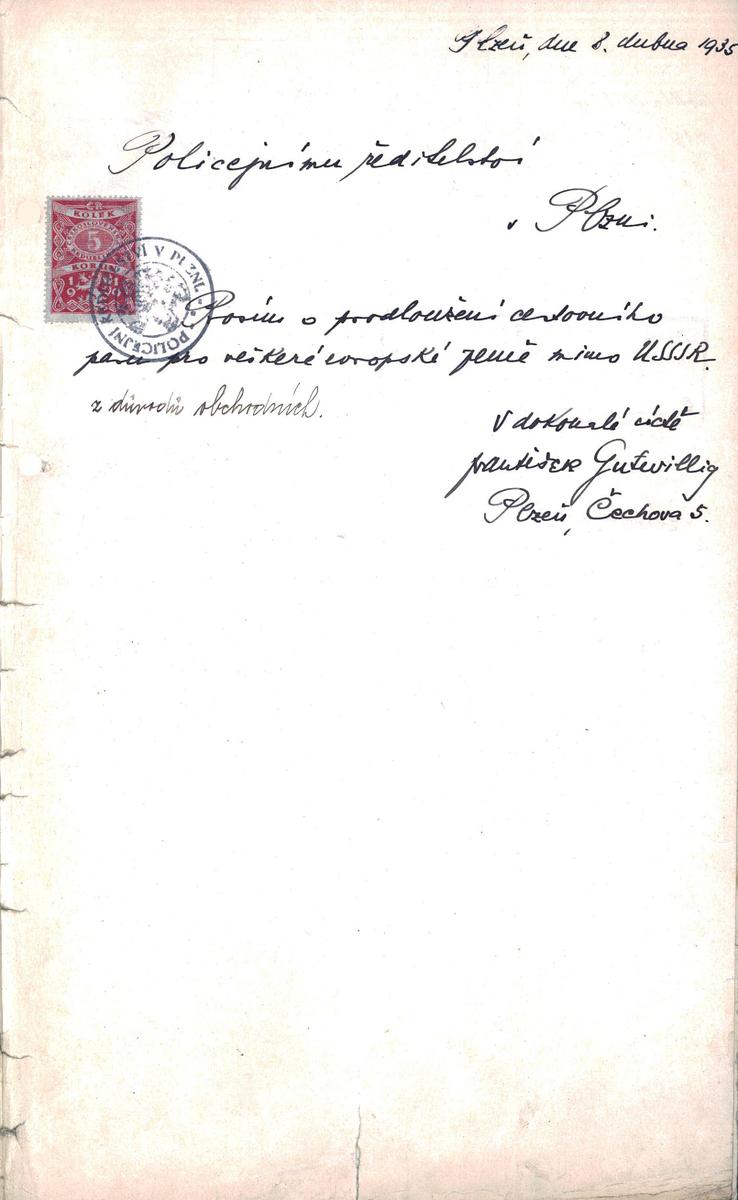 Plzeň, dne 8. dubna 1935
Policejnímu ředitelství
v Plzni.
KOLEK
5
KORUN
POLICEJNÍ ŘEDITELSTVÍ V PLZNI
Prosím o prodloužení cestovního
pasu pro veškeré evropské země mimo USSSR.
z důvodů obchodních.
V dokonalé úctě
František Gutwillig
Plzeň, Čechova 5.